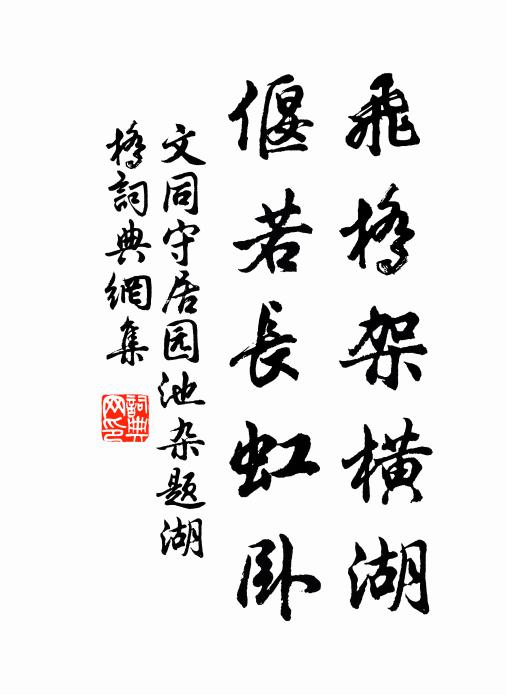 飛橋架橫湖
偃若長虹卧
文同守居园池杂题湖
橋詞典網集
詞典網印